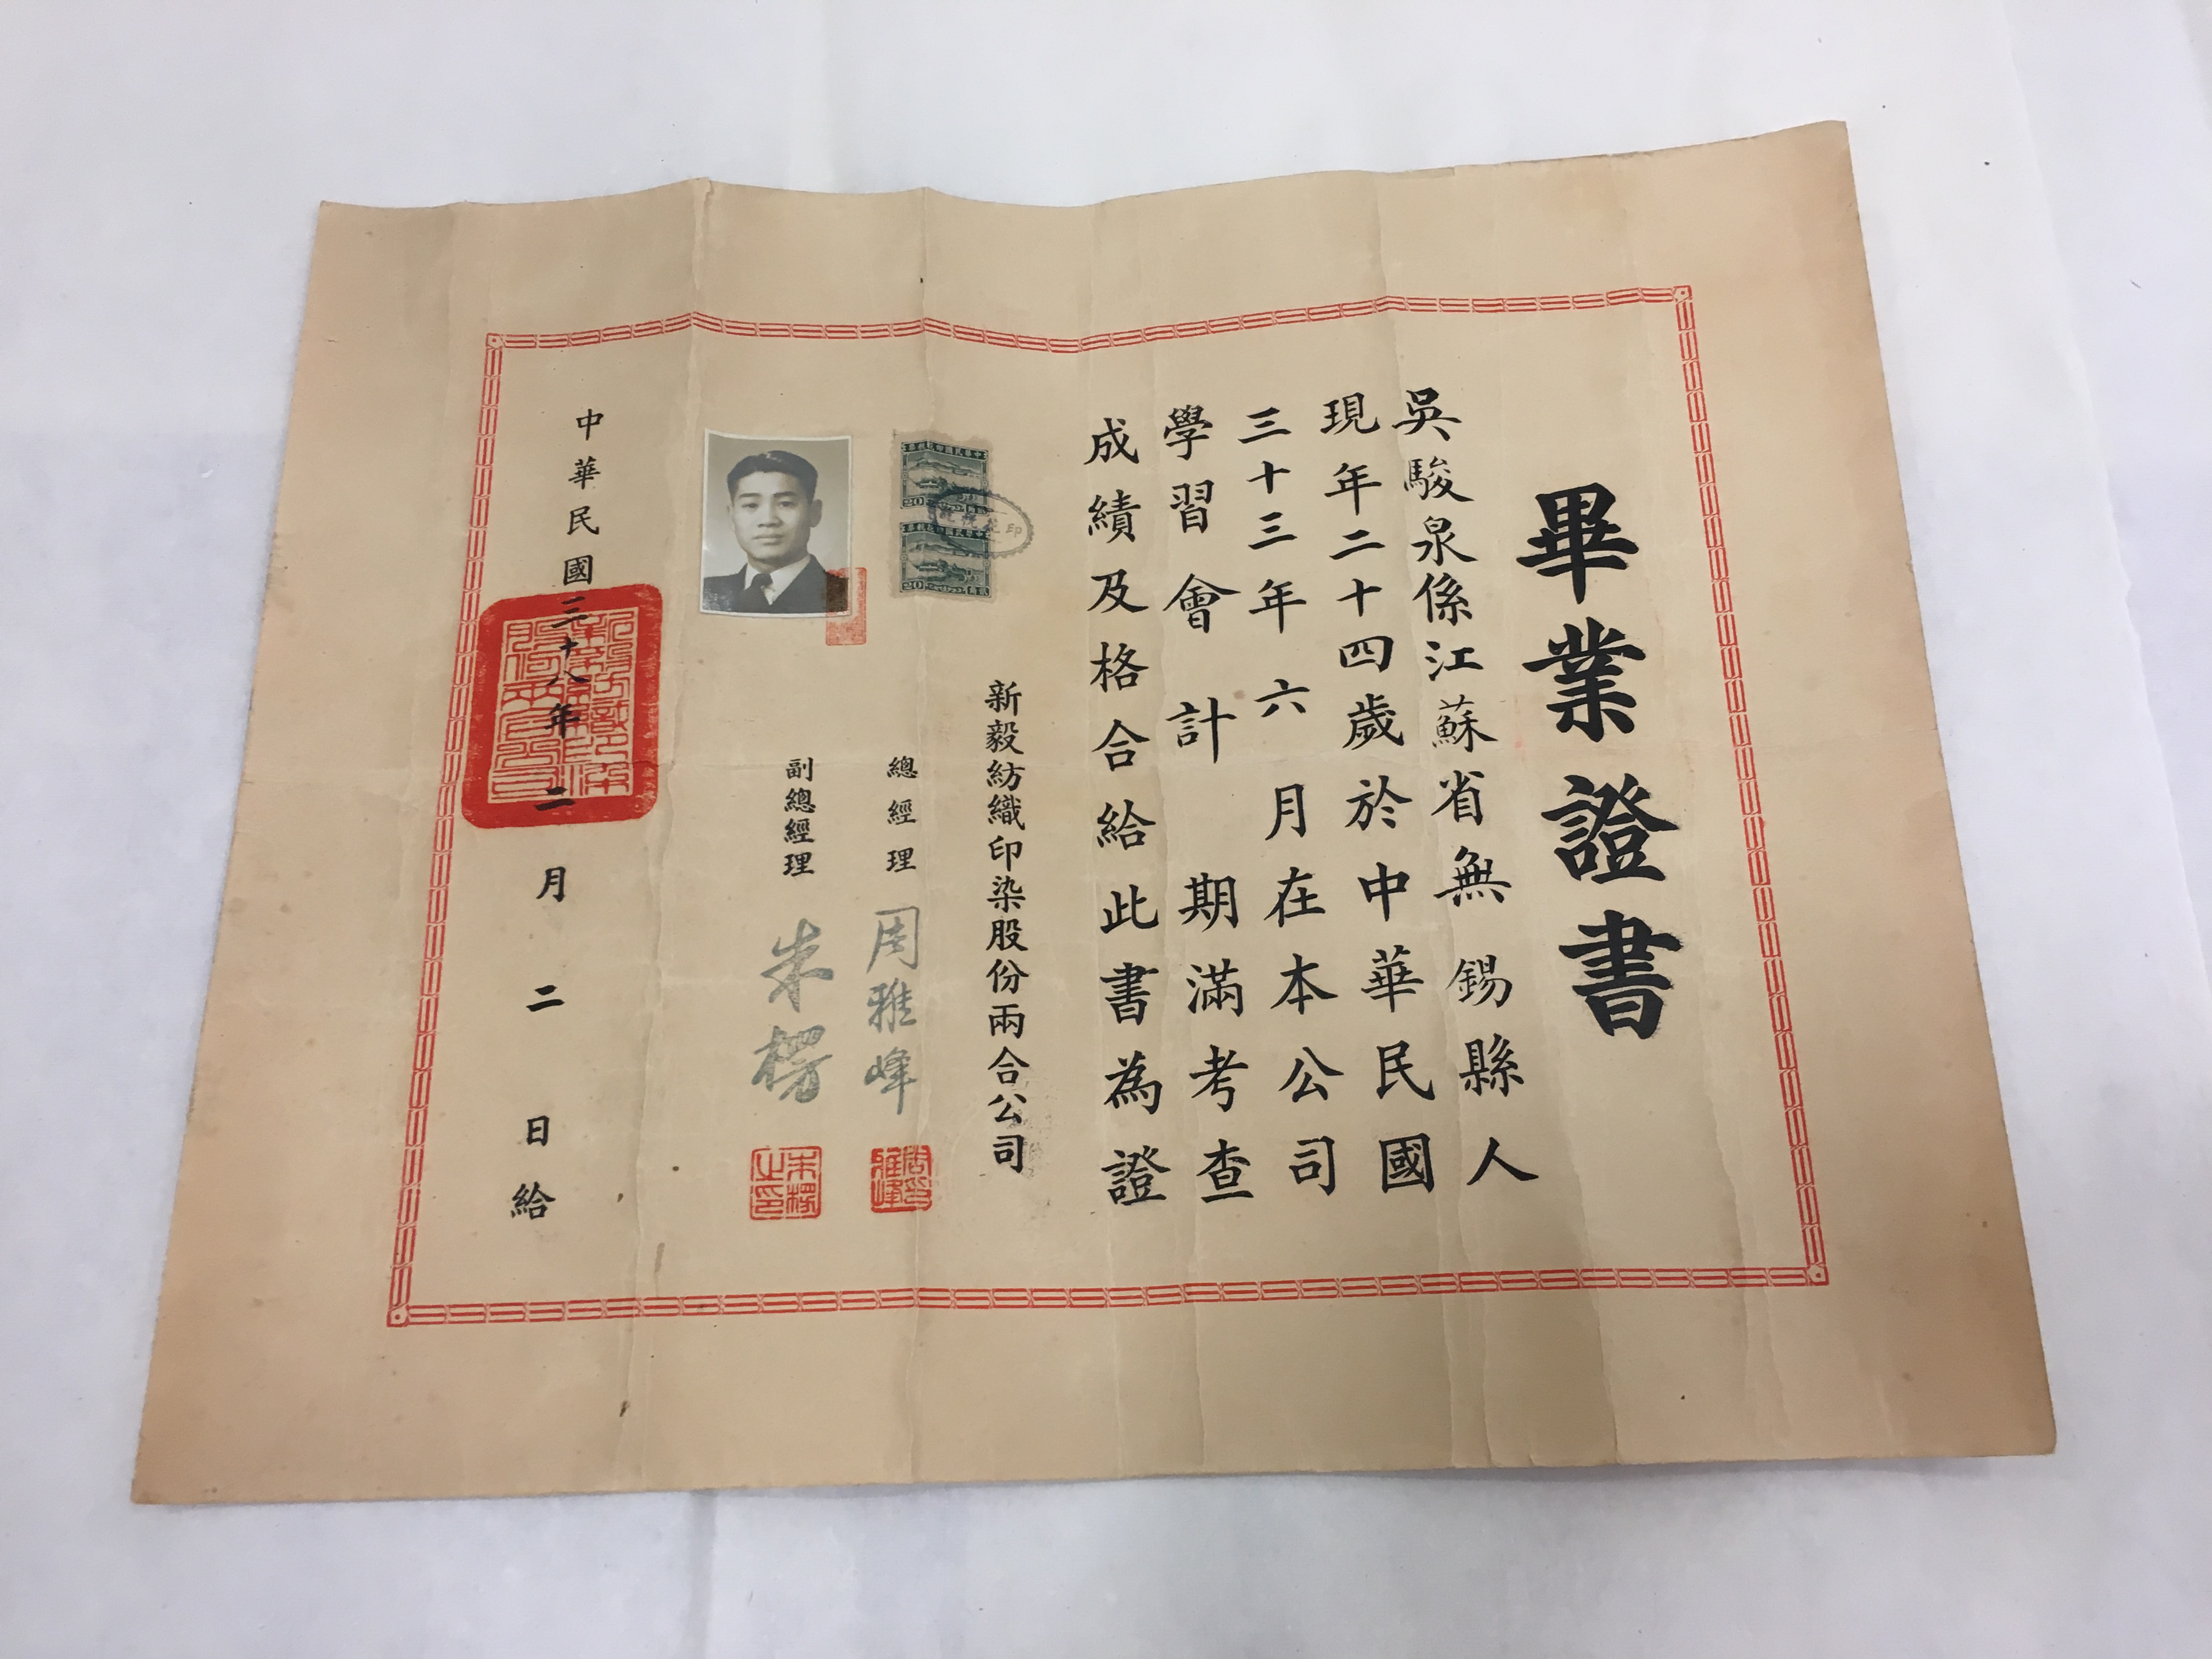 畢業證書
吳駿泉係江蘇省無錫縣人
現年二十四歲於中華民國
三十三年六月在本公司
學習會計期滿考查
成績及格合給此書為證
新毅紡織印染股份兩合公司
總經理 周雅峰
副總經理 朱楞
中華民國三十八年二月二日給
中華民國印花稅票
20
中華民國印花稅票
20